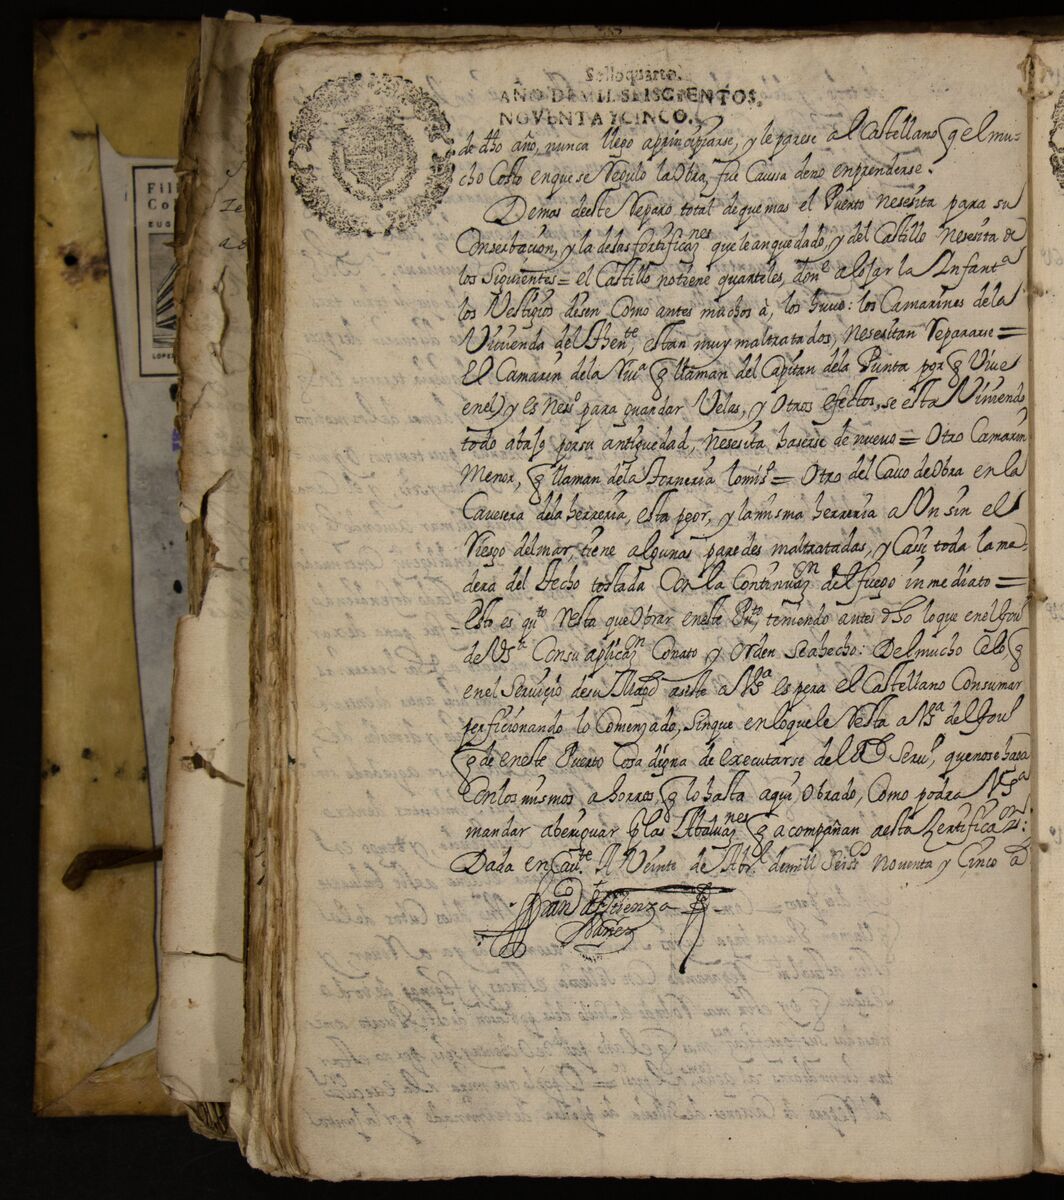 Sello quarto.
AÑO DE MIL SEISCIENTOS,
NOVENTA Y CINCO.
de dho año, nunca llego aprincipiarse, y le parese al Castellano q el mu-
cho Costo enque se Regulo la Obra, fue Caussa deno emprenderse.
Demas deeste Reparo total dequemas el Puerto nesesita para su
Conserbacion, y la delas fortificaz.nes que leanquedado, y del Castillo nesesita de
los Siguientes = el Castillo notiene quarteles, don.e alojar la Infant.a
los Vestigios disen Como antes muchos à, los huuo: los Camarines dela
Viuienda del Then.te, estan muy maltratados, nesesitan Repararse =
El Camarin dela q llaman del Capitan dela Punta pqr q Viue
enel) y es Nes.o para guardar Velas, y Otros efectos, se esta Viniendo
todo abajo porsu antiguedad, nesesita haserse de nueuo = Otro Camarin
Menor, q llaman dela lomis.o = Otro del Cauo de Obra en la
Cauesera dela herreria, esta peor, y lamisma herreria a Un sin el
Riesgo delmar, tiene algunas paredes maltratadas, y Casi toda lama-
dera del techo tostada Con la Continuaz.on del fuego inmediato =
Esto es q.to Resta que Obrar eneste P.to, teniendo antes lo que enel Gou.o
de V.s.a Consu aplicaz.n Conato y Orden Seahecho: Delmucho Celo, q
enel Seruiçio desu Mag.d asiste a V.s.a espera el Castellano Consumar
perficionando lo Comenzado, Sinque enloquele Resta a V.s.a del Gou.o
q de eneste Puerto Cosa digna de executarse del R.l Seru.o, quenose haga
Conlos mismos ahorros, q lo hasta aqui Obrado, Como podra V.s.a
mandar aberiguar p las q acompañan aesta Zertificaz.on:
Dada en Cau.te A Veinte de Abr.l demill Seis.os Nouenta y Çinco a.s